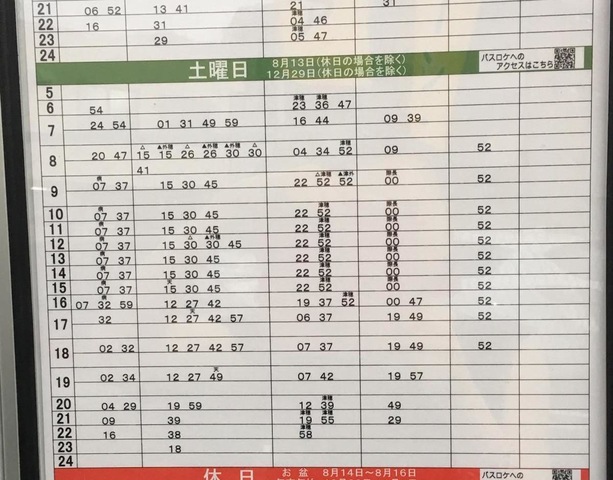 21 06 52 13 41 21 31
22 16 31 津穂 04 46
23 29 津穂 05 47
24
土曜日 8月13日(休日の場合を除く) 12月29日(休日の場合を除く) バスロケへの アクセスはこちら
5
6 54 津穂 津穂 23 36 47
7 24 54 01 31 49 59 16 44 09 39
8 20 47 △ ▲外穂 △ ▲外穂 ▲外穂 △ 15 15 26 26 30 30 津穂 04 34 52 09 52
41
9 病 07 37 15 30 45 △津穂 ▲津外 22 52 52 00 52
10 病 07 37 15 30 45 津穂 22 52 00 52
11 病 07 37 15 30 45 津穂 22 52 00 52
12 病 07 37 △ ▲外穂 15 30 30 45 津穂 22 52 00 52
13 病 07 37 15 30 45 津穂 22 52 00 52
14 病 07 37 15 30 45 津穂 22 52 00 52
15 病 07 37 15 30 45 津穂 22 52 00 52
16 病 07 32 59 天 12 27 42 津穂 19 37 52 00 47 52
17 32 天 12 27 42 57 06 37 19 49 52
18 02 32 12 27 42 57 07 37 19 49 52
19 02 34 天 12 27 49 07 42 19 57
20 04 29 19 59 津穂 12 39 49
21 09 39 津穂 津穂 19 55 29
22 16 38 津穂 58
23 18
24
休日 お盆 8月14日～8月16日 バスロケへの